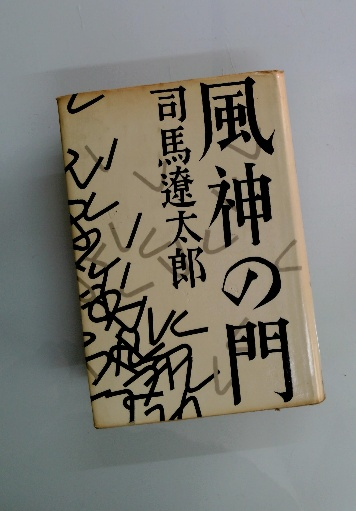 風神の門
司馬遼太郎